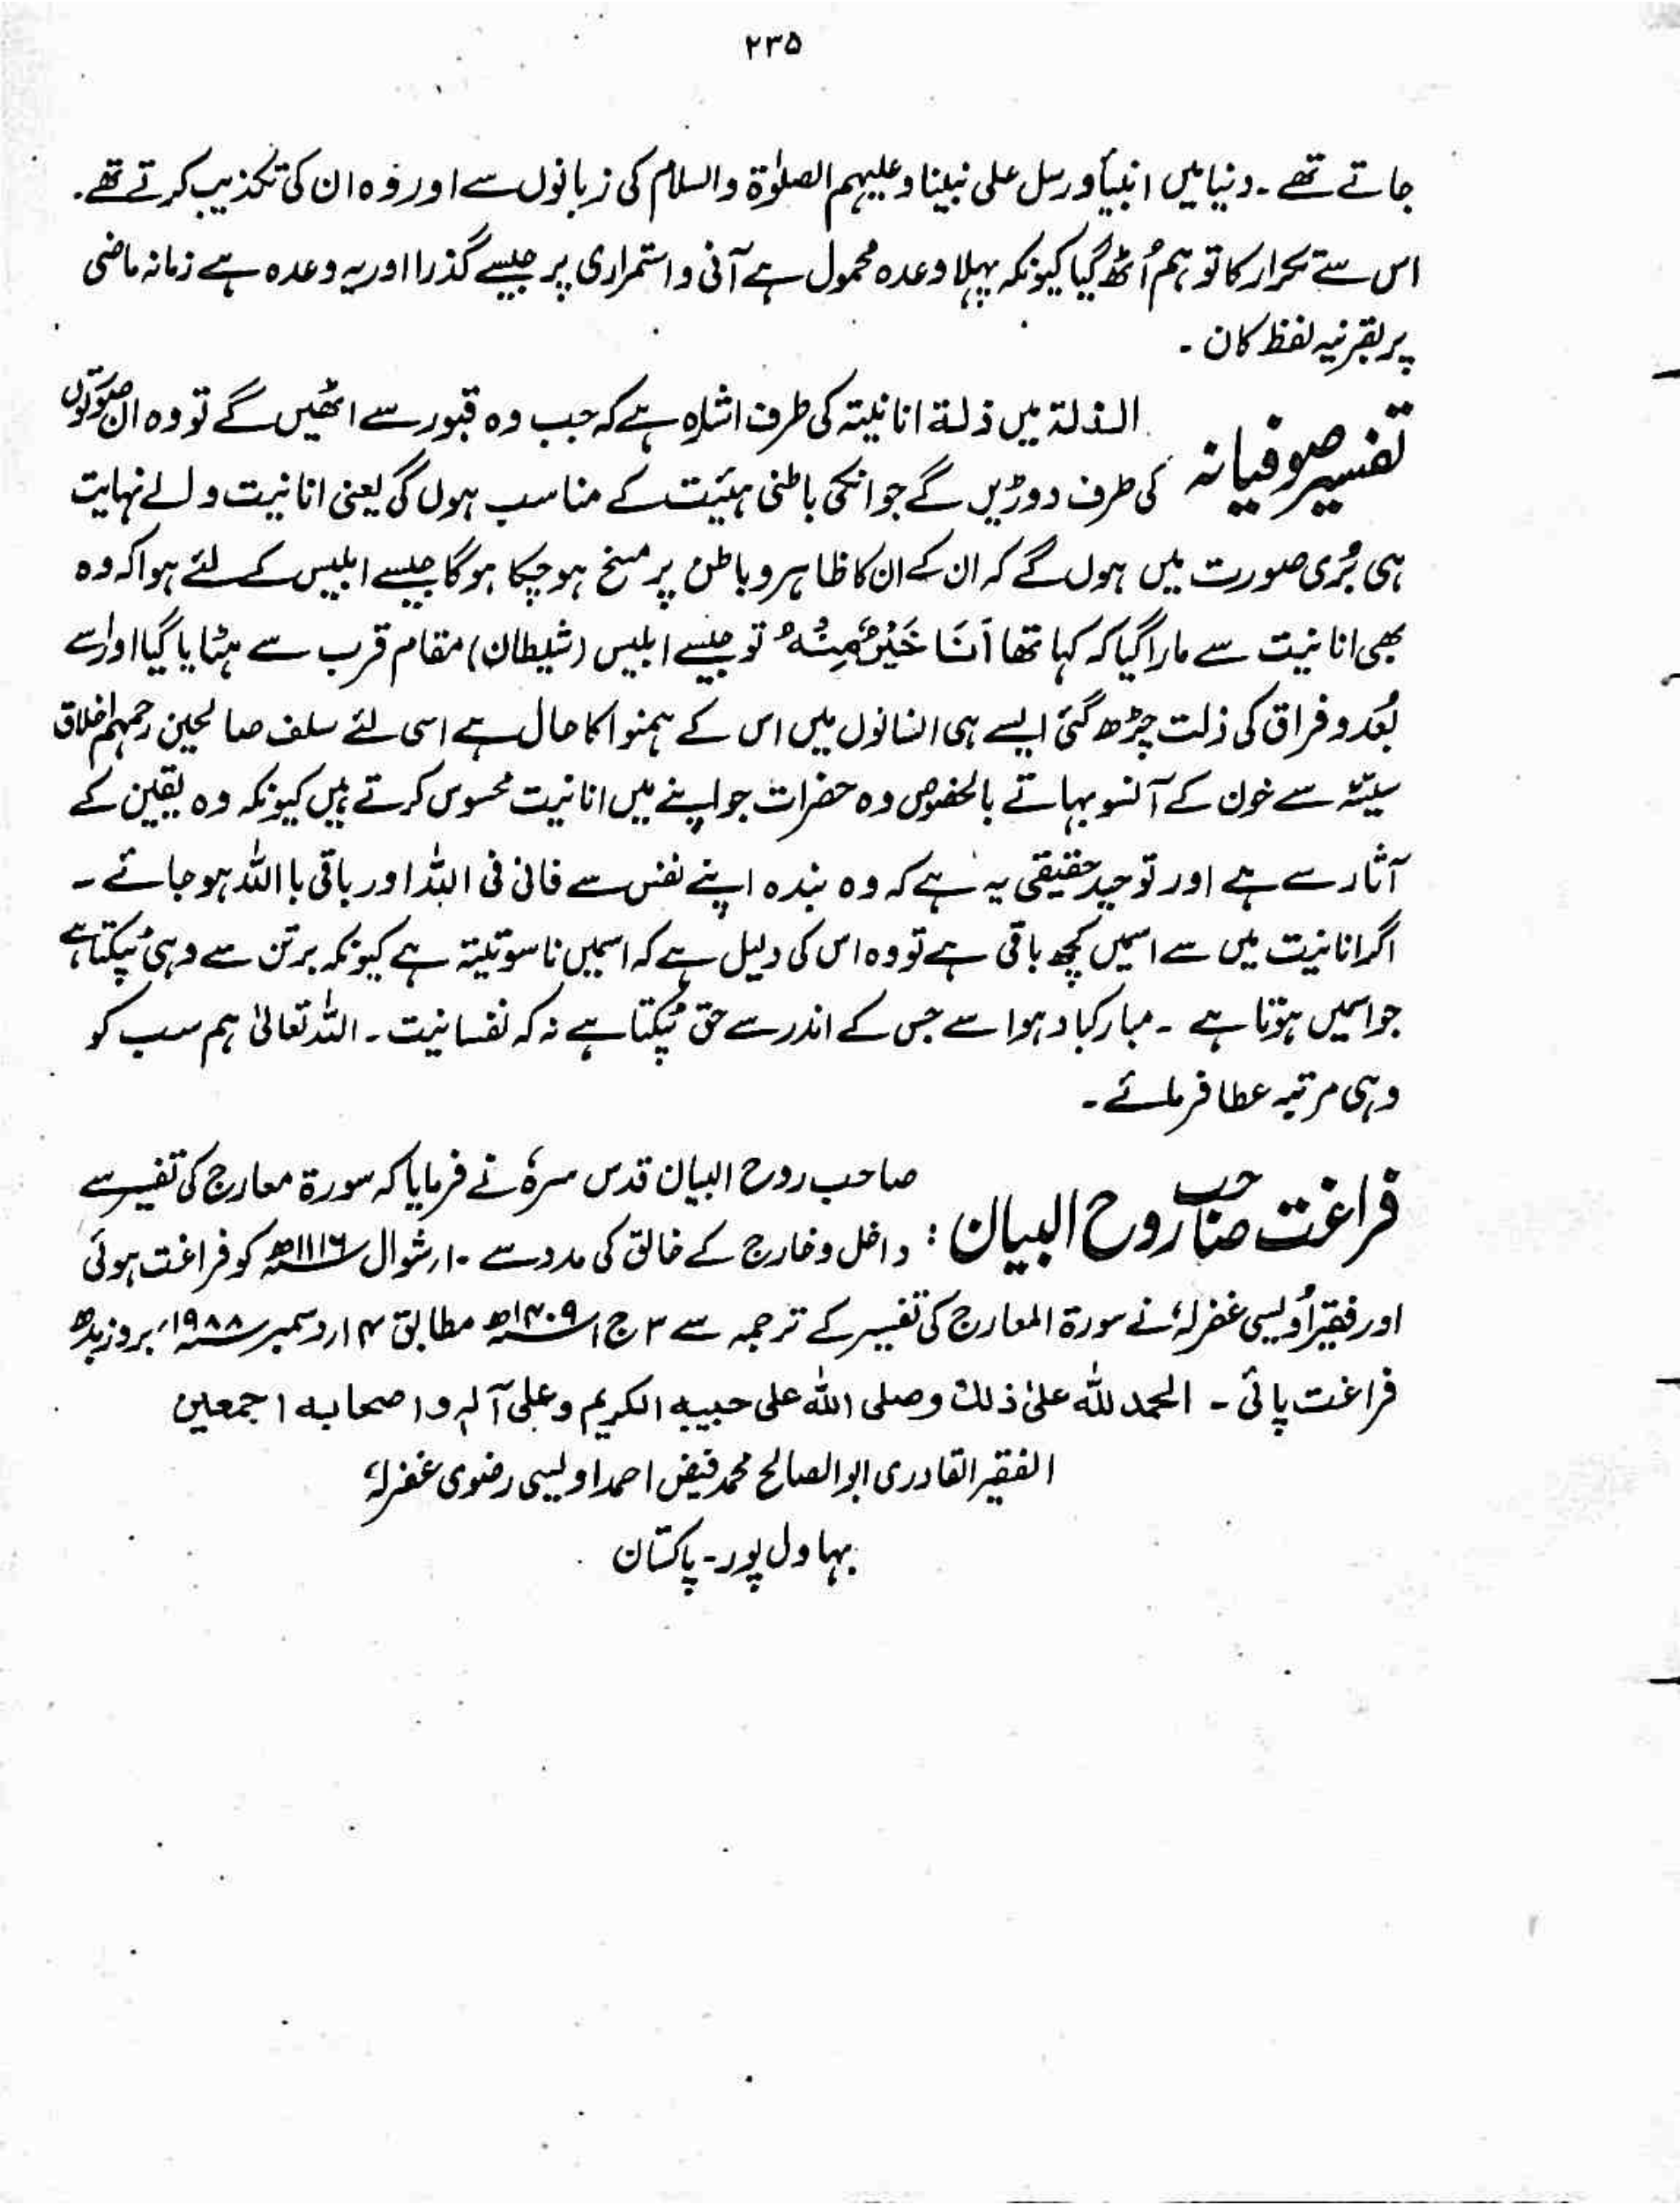 ۲۳۵
جاتے تھے ۔ دنیا میں انبیأ ورسل علی نبینا وعلیہم الصلوٰۃ والسلام کی زبانوں سے اور وُہ ان کی تکذیب کرتے تھے۔
اس سے تکرار کا توہم اُٹھ گیا کیونکہ پہلا وعدہ محمول ہے آنی و استمراری پر جیسے گذرا اور یہ وعدہ ہے زمانہ ماضی
پر بقرنیہ لفظ کان ۔
تفسیر صوفیانہ الذلۃ میں ذلۃ انانیتہ کی طرف اشارہ ہے کہ جب وہ قبور سے اٹھیں گے تو وہ ان صورتوں
کی طرف دوڑیں گے جو انکی باطنی ہیٔت کے مناسب ہوں گی یعنی انانیت والے نہایت
ہی بُری صورت میں ہوں گے کہ ان کے ان کا ظاہر و باطن پر مسخ ہو چکا ہوگا جیسے ابلیس کے لئے ہوا کہ وہ
بھی انانیت سے مارا گیا کہ کہا تھا اَنَا خَیْرٌ مِنْہُ تو جیسے ابلیس (شیطان) مقام قرب سے ہٹایا گیا اور اسے
بُعد و فراق کی ذلت چڑھ گئی ایسے ہی انسانوں میں اس کے ہمنوا کا حال ہے اسی لئے سلف صالحین رحمہم اخلاق
سیئہ سے خون کے آنسو بہاتے بالخصوص وہ حضرات جو اپنے میں انانیت محسوس کرتے ہیں کیونکہ وہ یقین کے
آثار سے ہے اور توحید حقیقی یہ ہے کہ وہ بندہ اپنے نفس سے فانی فی اللہ اور باقی با اللہ ہو جائے ۔
اگر انانیت میں سے اسمیں کچھ باقی ہے تو وہ اس کی دلیل ہے کہ اسمیں ناسوتیتہ ہے کیونکہ برتن سے وہی ٹپکتا ہے
جو اسمیں ہوتا ہے ۔ مبارکباد ہو اسے جس کے اندر سے حق ٹپکتا ہے نہ کہ نفسانیت ۔ اللہ تعالیٰ ہم سب کو
وہی مرتبہ عطا فرمائے ۔
فراغت صاحب روح البیان : صاحب روح البیان قدس سرہٗ نے فرمایا کہ سورۃ معارج کی تفسیر سے
داخل و خارج کے خالق کی مدد سے ۱۰ رشوال ۱۱۱۶ھ کو فراغت ہوئی
اور فقیر اُویسی غفرلہٗ نے سورۃ المعارج کی تفسیر کے ترجمہ سے ۳ ج ۱ ۱۴۰۹ھ مطابق ۱۴ ردسمبر ۱۹۸۸ء بروز بدھ
فراغت پائی ۔ الحمد للہ علیٰ ذلک وصلی اللہ علی حبیبہ الکریم وعلی آلہ واصحابہ اجمعین
الفقیر القادری ابوالصالح محمد فیض احمد اویسی رضوی غفرلہٗ
بہاول پور ۔ پاکستان